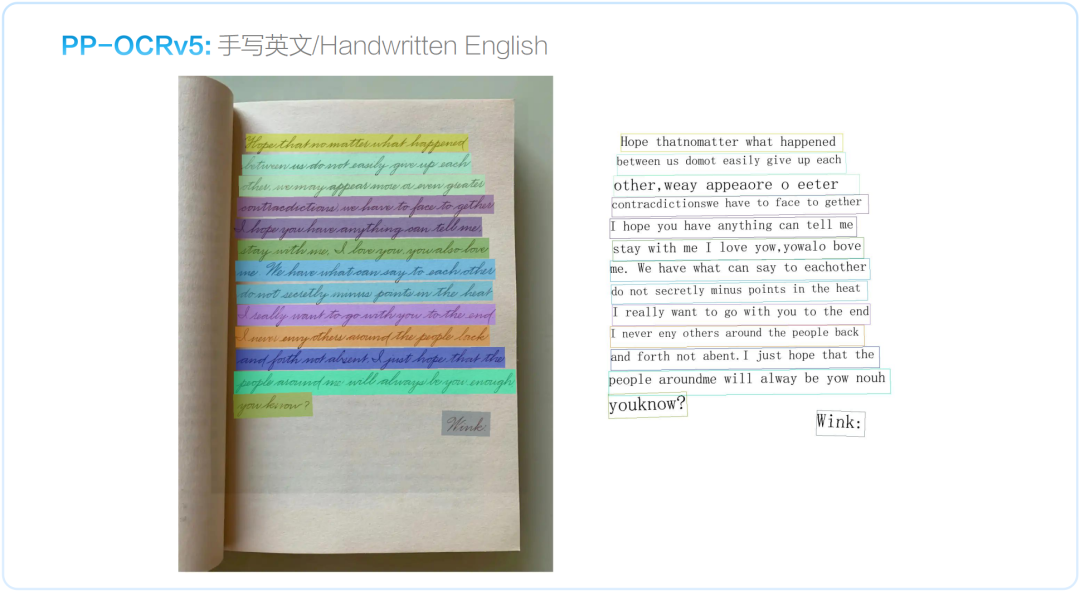 PP-OCRv5: 手写英文/Handwritten English
Hope that no matter what happened
between us do not easily give up each
other, we may appear more or even greater
contracdictions we have to face to gether
I hope you have anything can tell me,
stay with me, I love you, you also love
me We have what can say to each other
do not secretly minus points in the heat
I really want to go with you to the end
I never envy others around the people back
and forth not absent, I just hope that the
people around me will always be you enough
you know?
Wink:
Hope thatnomatter what happened
between us domot easily give up each
other,weay appeaore o eeter
contracdictionswe have to face to gether
I hope you have anything can tell me
stay with me I love yow,yowalo bove
me. We have what can say to eachother
do not secretly minus points in the heat
I really want to go with you to the end
I never eny others around the people back
and forth not abent.I just hope that the
people aroundme will alway be yow nouh
youknow?
Wink: